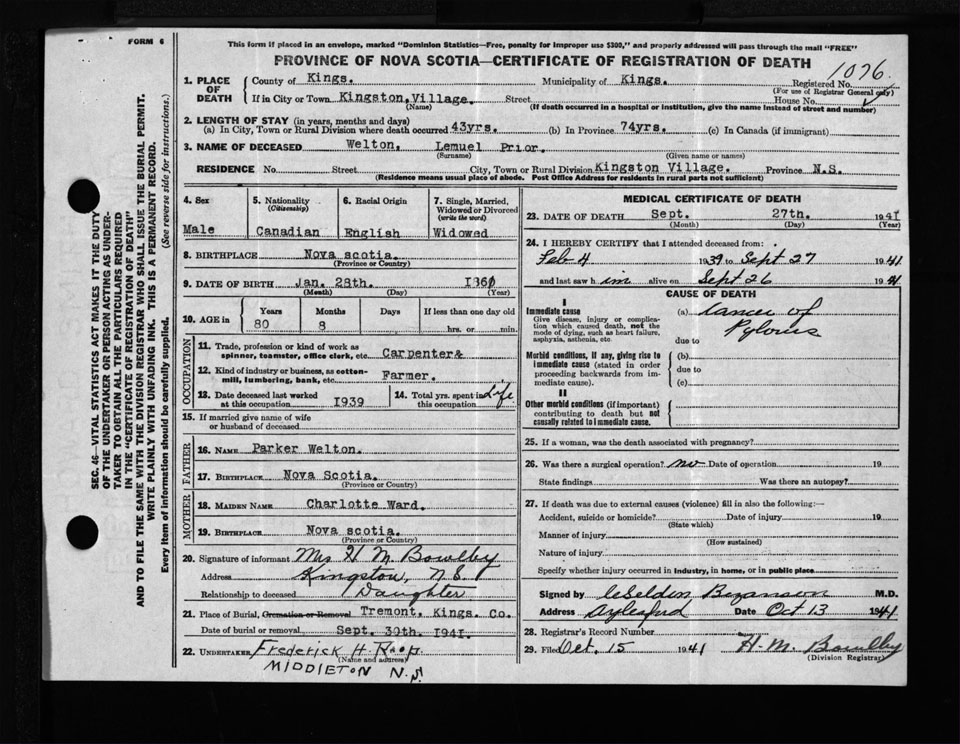 FORM 6
SEC. 46—VITAL STATISTICS ACT MAKES IT THE DUTY
OF THE UNDERTAKER OR PERSON ACTING AS UNDER-
TAKER TO OBTAIN ALL THE PARTICULARS REQUIRED
IN THE "CERTIFICATE OF REGISTRATION OF DEATH"
AND TO FILE THE SAME WITH THE DIVISION REGISTRAR WHO SHALL ISSUE THE BURIAL PERMIT.
WRITE PLAINLY WITH UNFADING INK. THIS IS A PERMANENT RECORD.
Every item of information should be carefully supplied. (See reverse side for instructions.)
This form if placed in an envelope, marked "Dominion Statistics—Free, penalty for improper use $300," and properly addressed will pass through the mail "FREE"
PROVINCE OF NOVA SCOTIA—CERTIFICATE OF REGISTRATION OF DEATH
1. PLACE OF DEATH County of Kings. Municipality of Kings. Registered No. 1076
(For use of Registrar General only)
If in City or Town Kingston, Village. Street House No.
(Name) (If death occurred in a hospital or institution, give the name instead of street and number)
2. LENGTH OF STAY (in years, months and days)
(a) In City, Town or Rural Division where death occurred 43yrs. (b) In Province 74yrs. (c) In Canada (if immigrant)
3. NAME OF DECEASED Welton, Lemuel Prior.
(Surname) (Given name or names)
RESIDENCE No. Street City, Town or Rural Division Kingston Village. Province N.S.
(Residence means usual place of abode. Post Office Address for residents in rural parts not sufficient)
4. Sex 5. Nationality (Citizenship) 6. Racial Origin 7. Single, Married, Widowed or Divorced (write the word)
Male Canadian English Widowed
8. BIRTHPLACE Nova scotia.
(Province or Country)
9. DATE OF BIRTH Jan. 28th.
(Month) (Day) (Year)
10. AGE in Years Months Days If less than one day old
80 8 hrs. or min.
OCCUPATION
11. Trade, profession or kind of work as
spinner, teamster, office clerk, etc. Carpenter&
12. Kind of industry or business, as cotton-
mill, lumbering, bank, etc. Farmer.
13. Date deceased last worked
at this occupation 1939
14. Total yrs. spent in
this occupation Life
15. If married give name of wife
or husband of deceased
FATHER
16. NAME Parker Welton.
17. BIRTHPLACE Nova Scotia.
(Province or Country)
MOTHER
18. MAIDEN NAME Charlotte Ward.
19. BIRTHPLACE Nova scotia.
(Province or Country)
20. Signature of informant Mrs H M. Bowlby
Address Kingston, N.S.
Relationship to deceased Daughter
21. Place of Burial, Cremation or Removal Tremont, Kings. Co.
Date of burial or removal, Sept. 30th. 1941.
22. UNDERTAKER Frederick H. Roop.
(Name and address)
MIDDLETON N.S.
MEDICAL CERTIFICATE OF DEATH
23. DATE OF DEATH Sept. 27th. 1941
(Month) (Day) (Year)
24. I HEREBY CERTIFY that I attended deceased from:
Feb 4 1939 to Sept 27 1941
and last saw him alive on Sept 26 1941
CAUSE OF DEATH
I
Immediate cause
Give disease, injury or complica-
tion which caused death, not the
mode of dying, such as heart failure,
asphyxia, asthenia, etc.
(a) Cancer of
Pylorus
due to
Morbid conditions, if any, giving rise to
immediate cause (stated in order
proceeding backwards from im-
mediate cause).
(b)
due to
(c)
II
Other morbid conditions (if important)
contributing to death but not
causally related to immediate cause.
25. If a woman, was the death associated with pregnancy?
26. Was there a surgical operation? no Date of operation 19
State findings Was there an autopsy?
27. If death was due to external causes (violence) fill in also the following:—
Accident, suicide or homicide? Date of injury 19
(State which)
Manner of injury
(How sustained)
Nature of injury
Specify whether injury occurred in industry, in home, or in public place
Signed by Bezanson M.D.
Address Aylesford Date Oct 13 1941
28. Registrar's Record Number
29. Filed Oct. 15 1941 H. M. Bowlby
(Division Registrar)